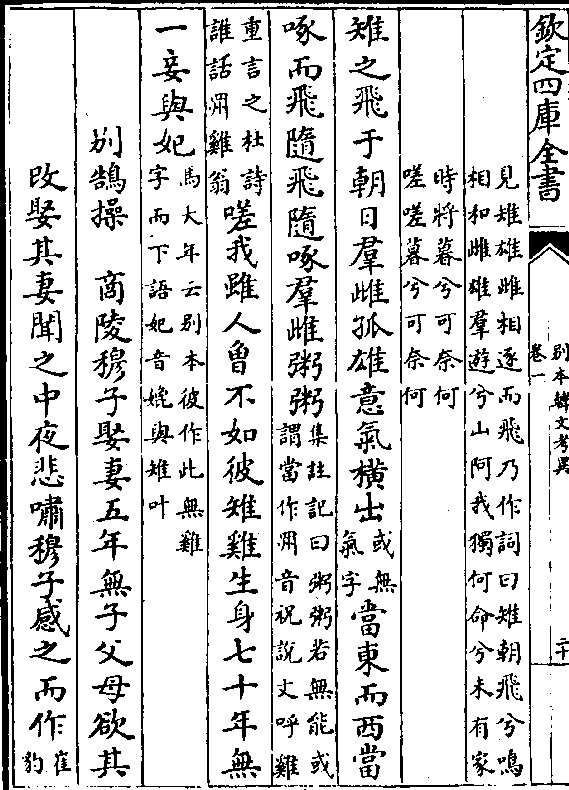 欽定四庫全書
別本韓文考異
卷一
二十
見雉雄雌相逐而飛乃作詞曰雉朝飛兮鳴
相和雌雄羣遊兮山阿我獨何命兮未有家
時將暮兮可奈何
嗟嗟暮兮可奈何
雉之飛于朝日羣雌孤雄意氣橫出
或無
氣字
當東而西當
啄而飛隨飛隨啄羣雌粥粥
集註記曰粥粥若無能或
謂當作喌音祝說文呼雞
重言之杜詩
誰話喌雞翁
嗟我雖人曾不如彼雉雞生身七十年無
一妾與妃
馬大年云別本彼作此無雞
字而下語妃音媲與雉叶
別鵠操　商陵穆子娶妻五年無子父母欲其
改娶其妻聞之中夜悲嘯穆子感之而作
崔
豹